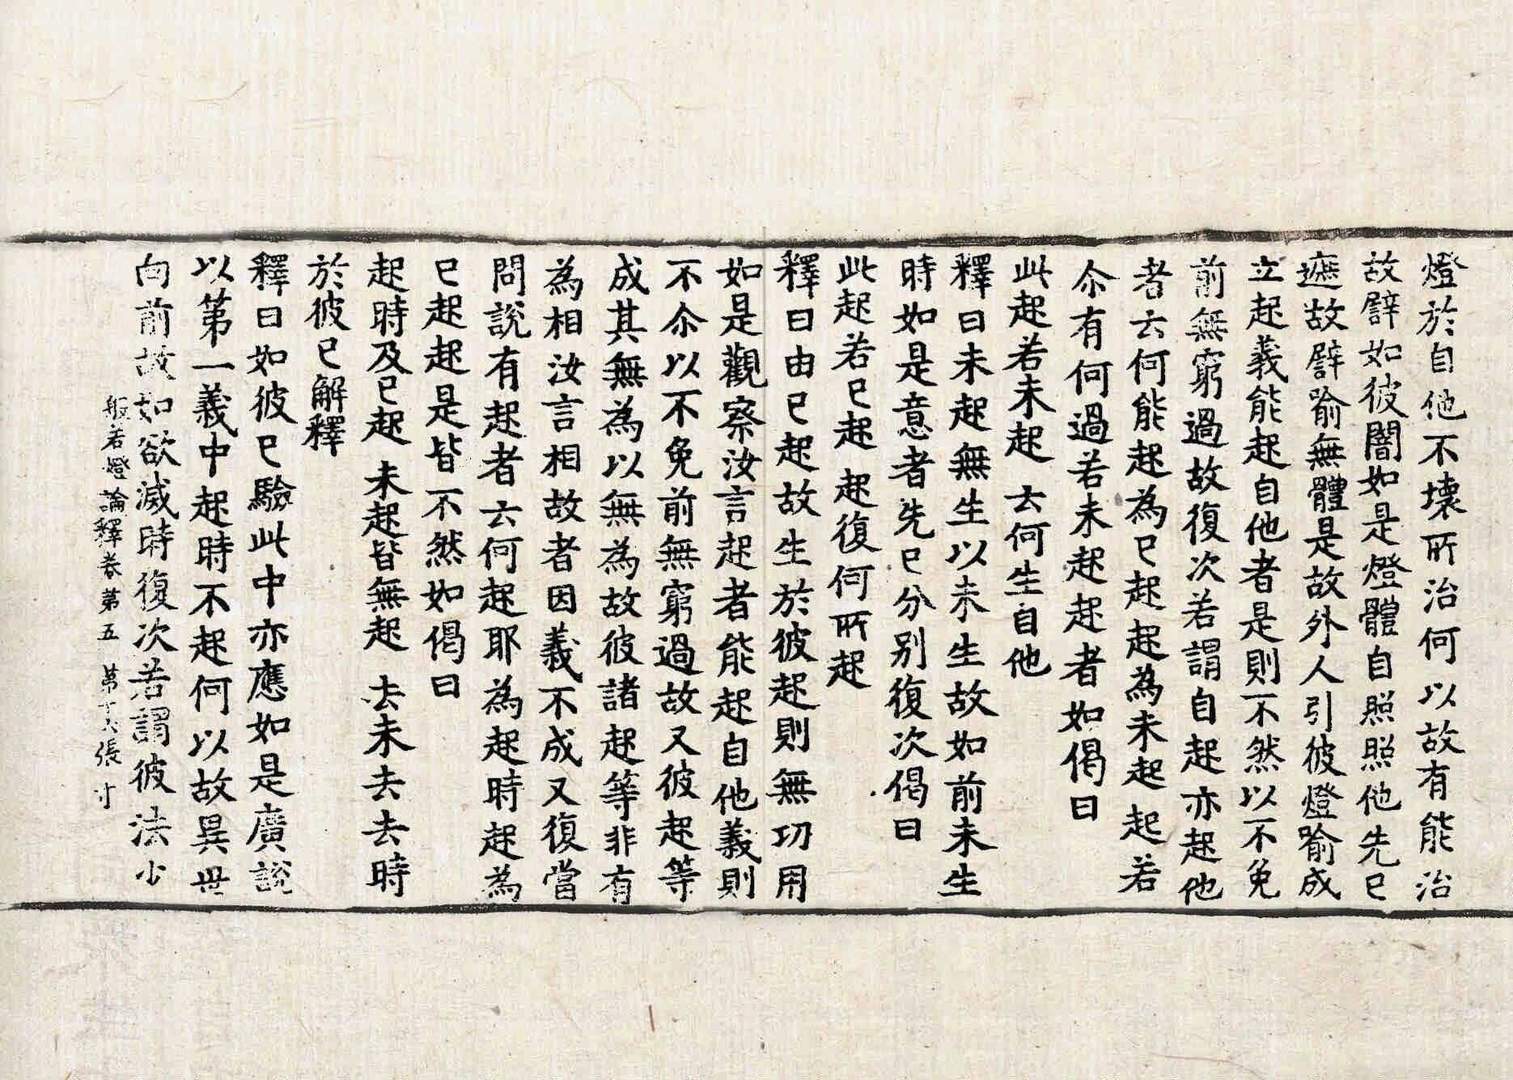 燈於自他不壞所治何以故有能治
故譬如彼闇如是燈體自照照他先已
遮故譬喻無體是故外人引彼燈喻成
立起義能起自他者是則不然以不免
前無窮過故復次若謂自起亦起他
者云何能起為已起起為未起起若
尒有何過若未起起者如偈曰
此起若未起 云何生自他
釋曰未起無生以未生故如前未生
時如是意者先已分別復次偈曰
此起若已起 起復何所起
釋曰由已起故生於彼起則無功用
如是觀察汝言起者能起自他義則
不尒以不免前無窮過故又彼起等
成其無為以無為故彼諸起等非有
為相汝言相故者因義不成又復當
問說有起者云何起耶為起時起為
已起起是皆不然如偈曰
起時及已起 未起皆無起 去未去去時
於彼已解釋
釋曰如彼已驗此中亦應如是廣說
以第一義中起時不起何以故異世
向前故如欲滅時復次若謂彼法少
般若燈論釋卷第五 第十六張 寸